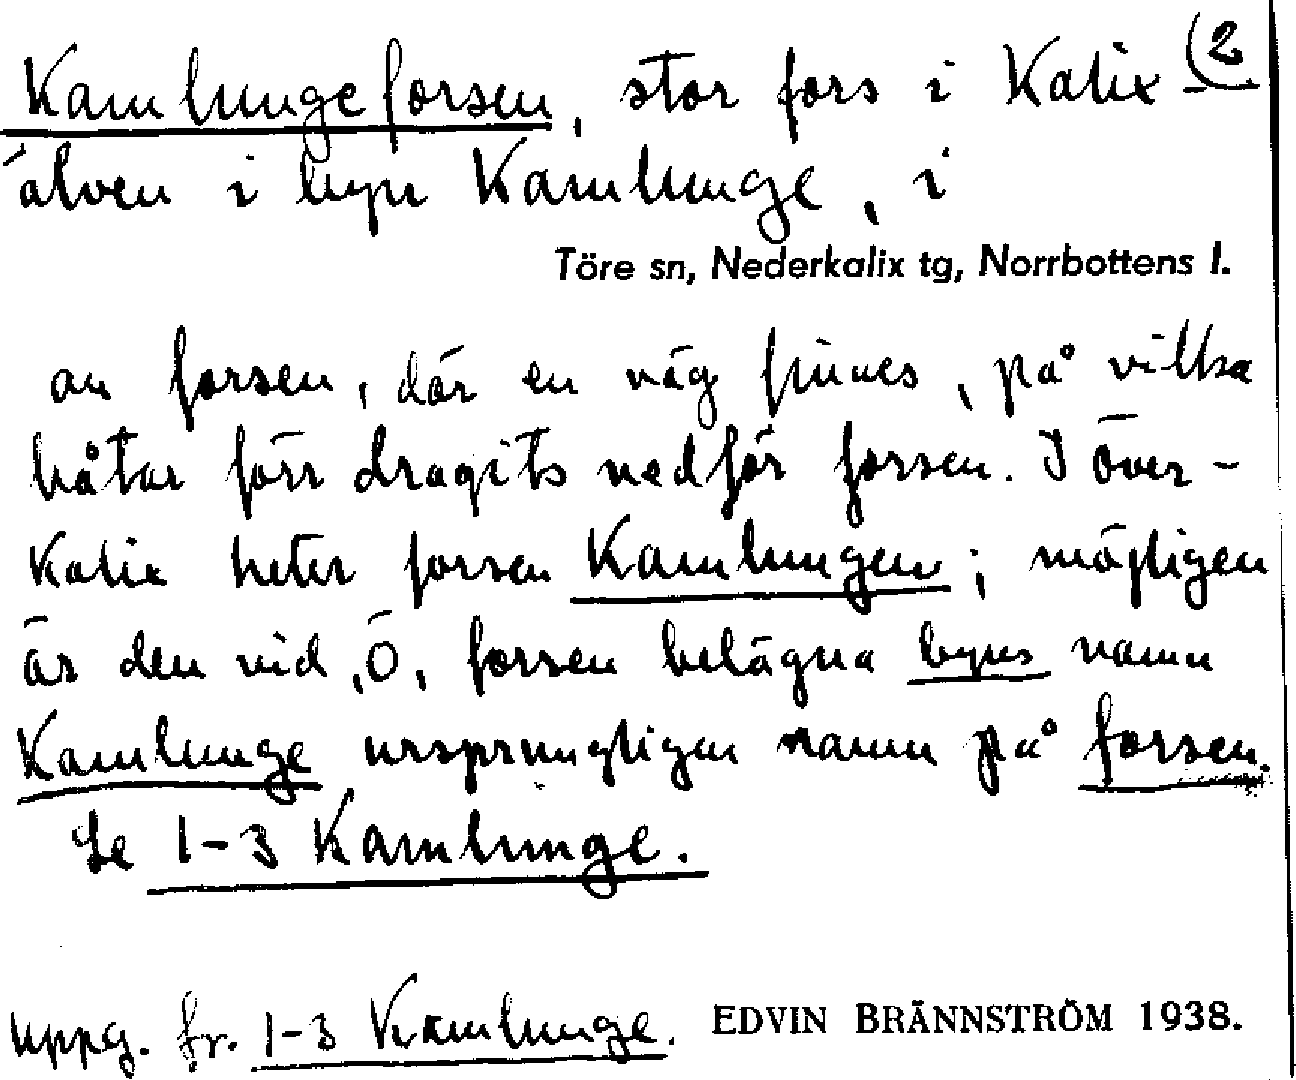 Kamlungeforsen, stor fors i Kalix (2
älven i byn Kamlunge, i
Töre sn, Nederkalix tg, Norrbottens l.
av forsen, där en väg finnes, på vilka
båtar förr dragits nedför forsen. I över-
Kalix heter forsen Kamlungen; möjligen
är den vid Ö. forsen belägna byns namn
Kamlunge ursprungligen namn på forsen.
Se 1-3 Kamlunge.
Uppg. fr. 1-3 Kamlunge. EDVIN BRÄNNSTRÖM 1938.